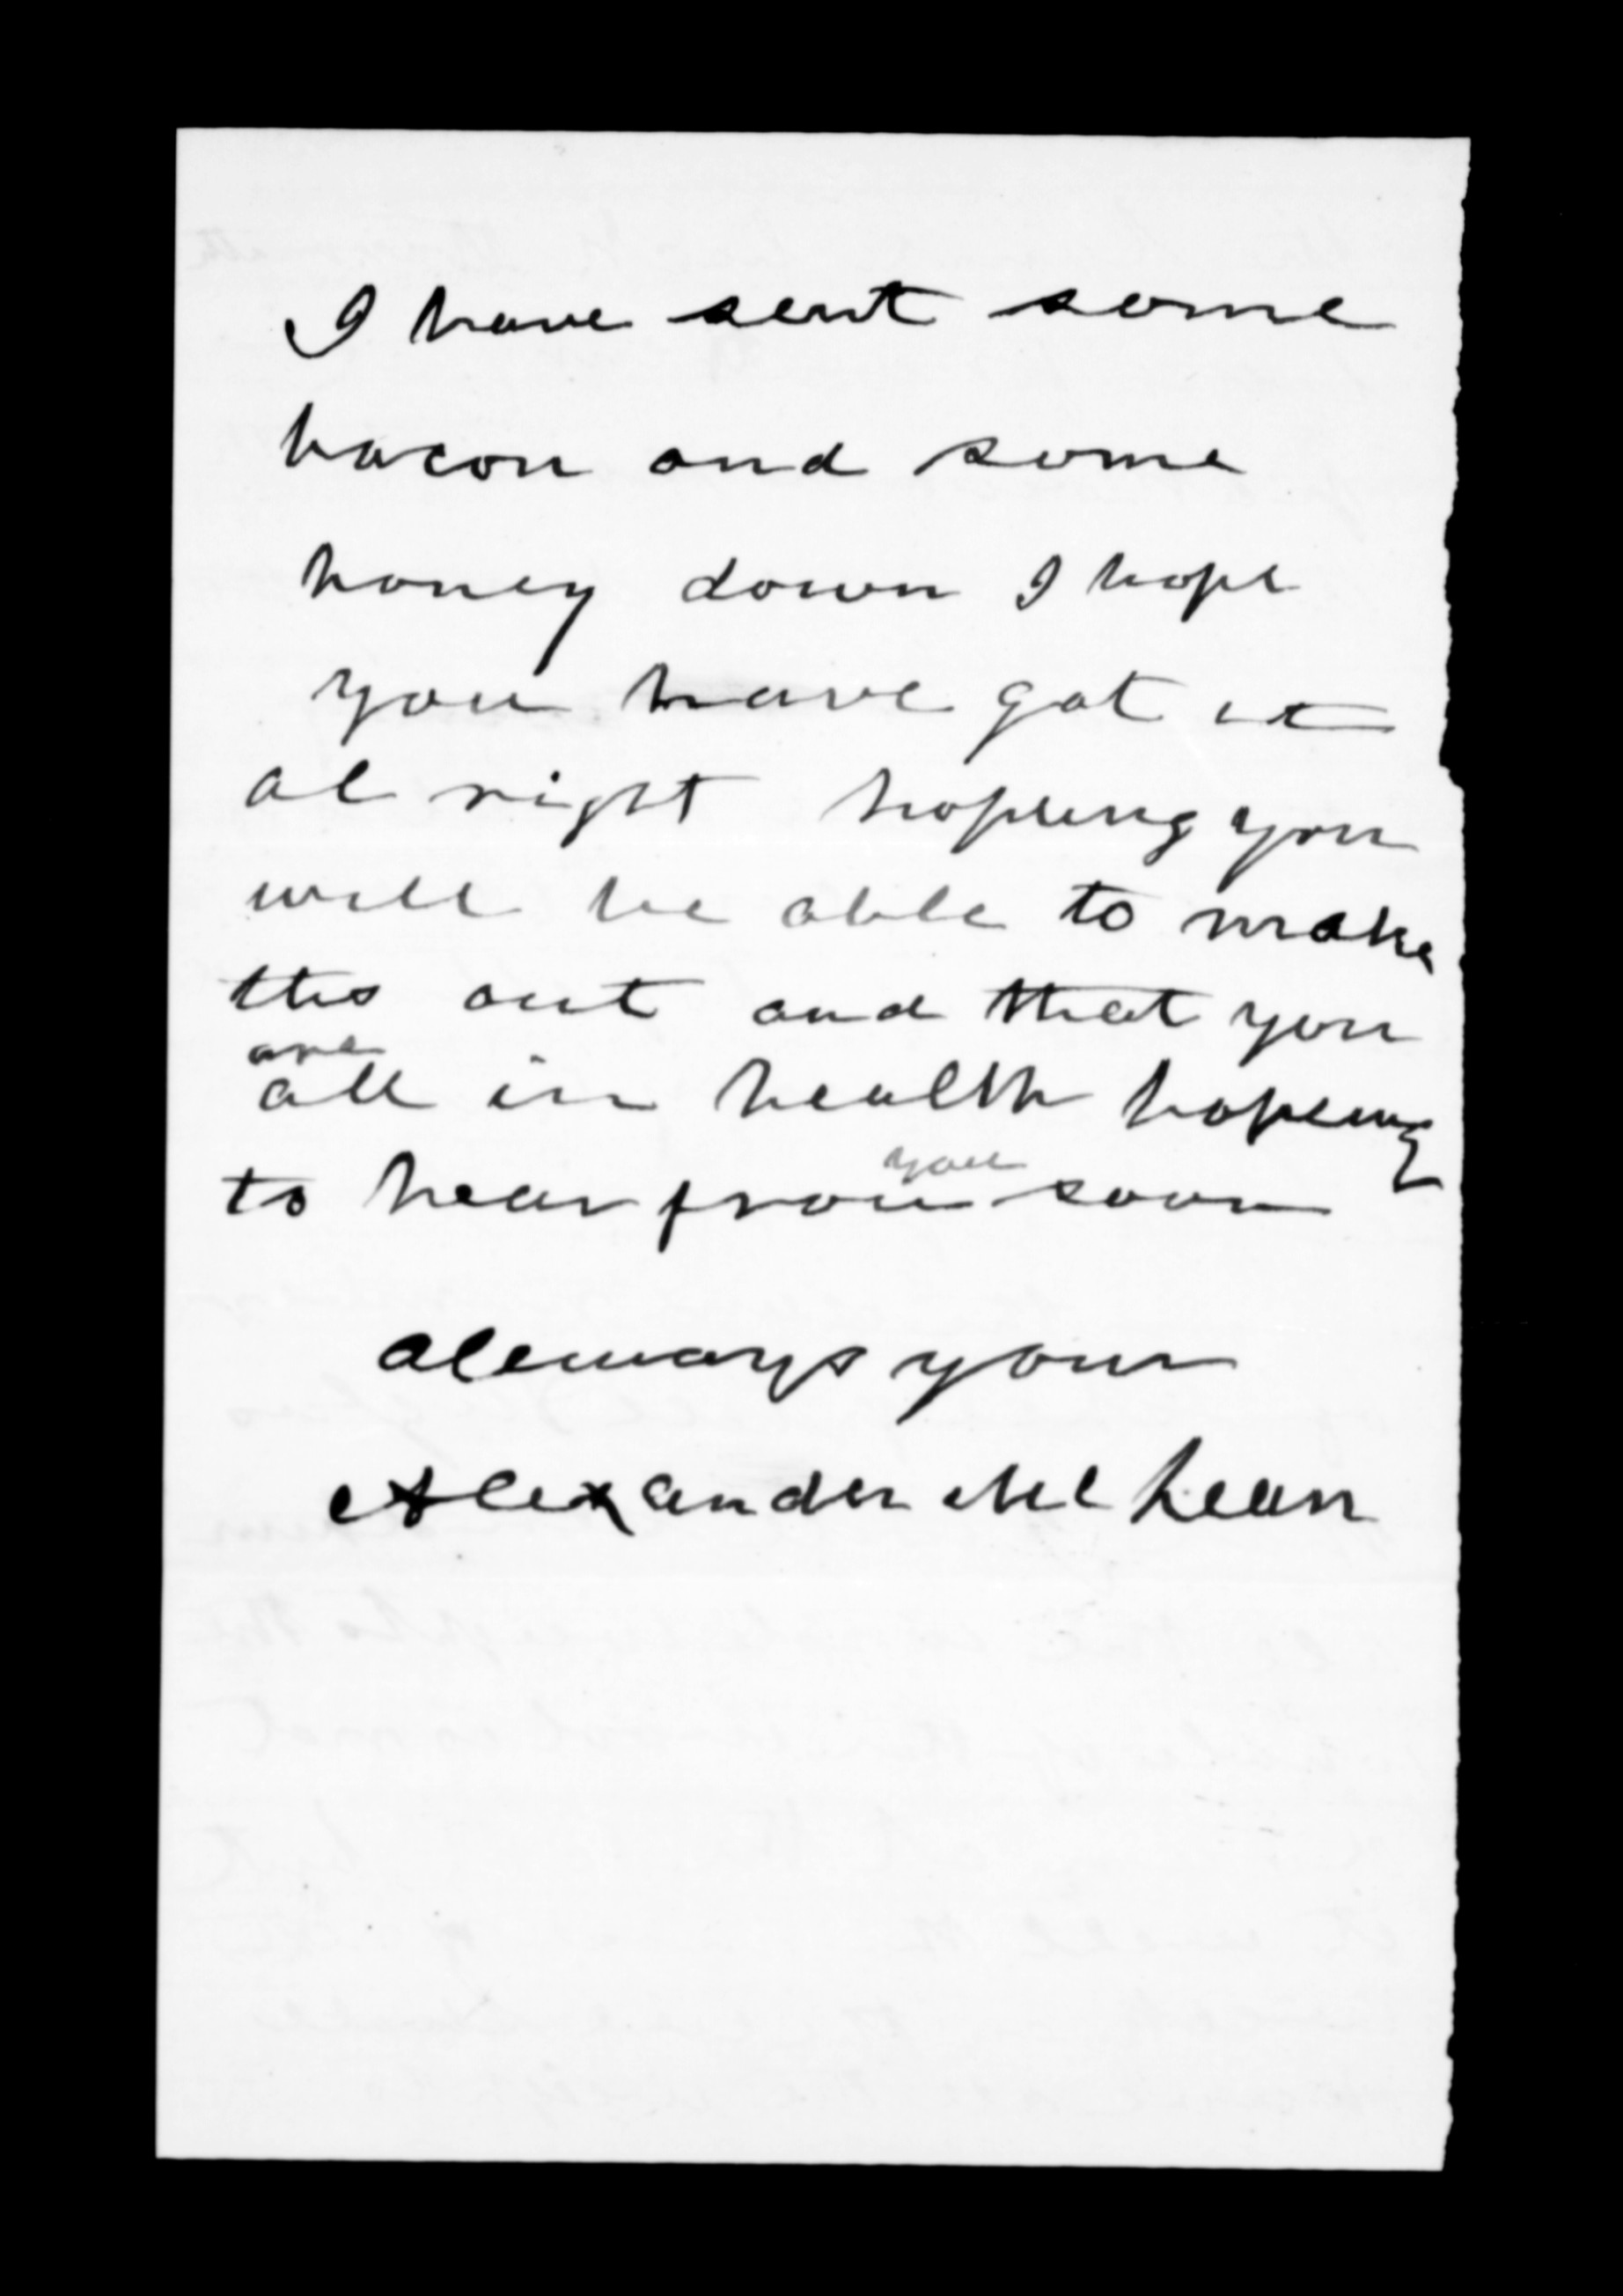 I have sent some
bacon and some
honey down I hope
you have got it
al right hopeing you
will be able to make
this out and that you
are
all in health hopeing
you
to hear from soon
aleways your
Alexander McLean